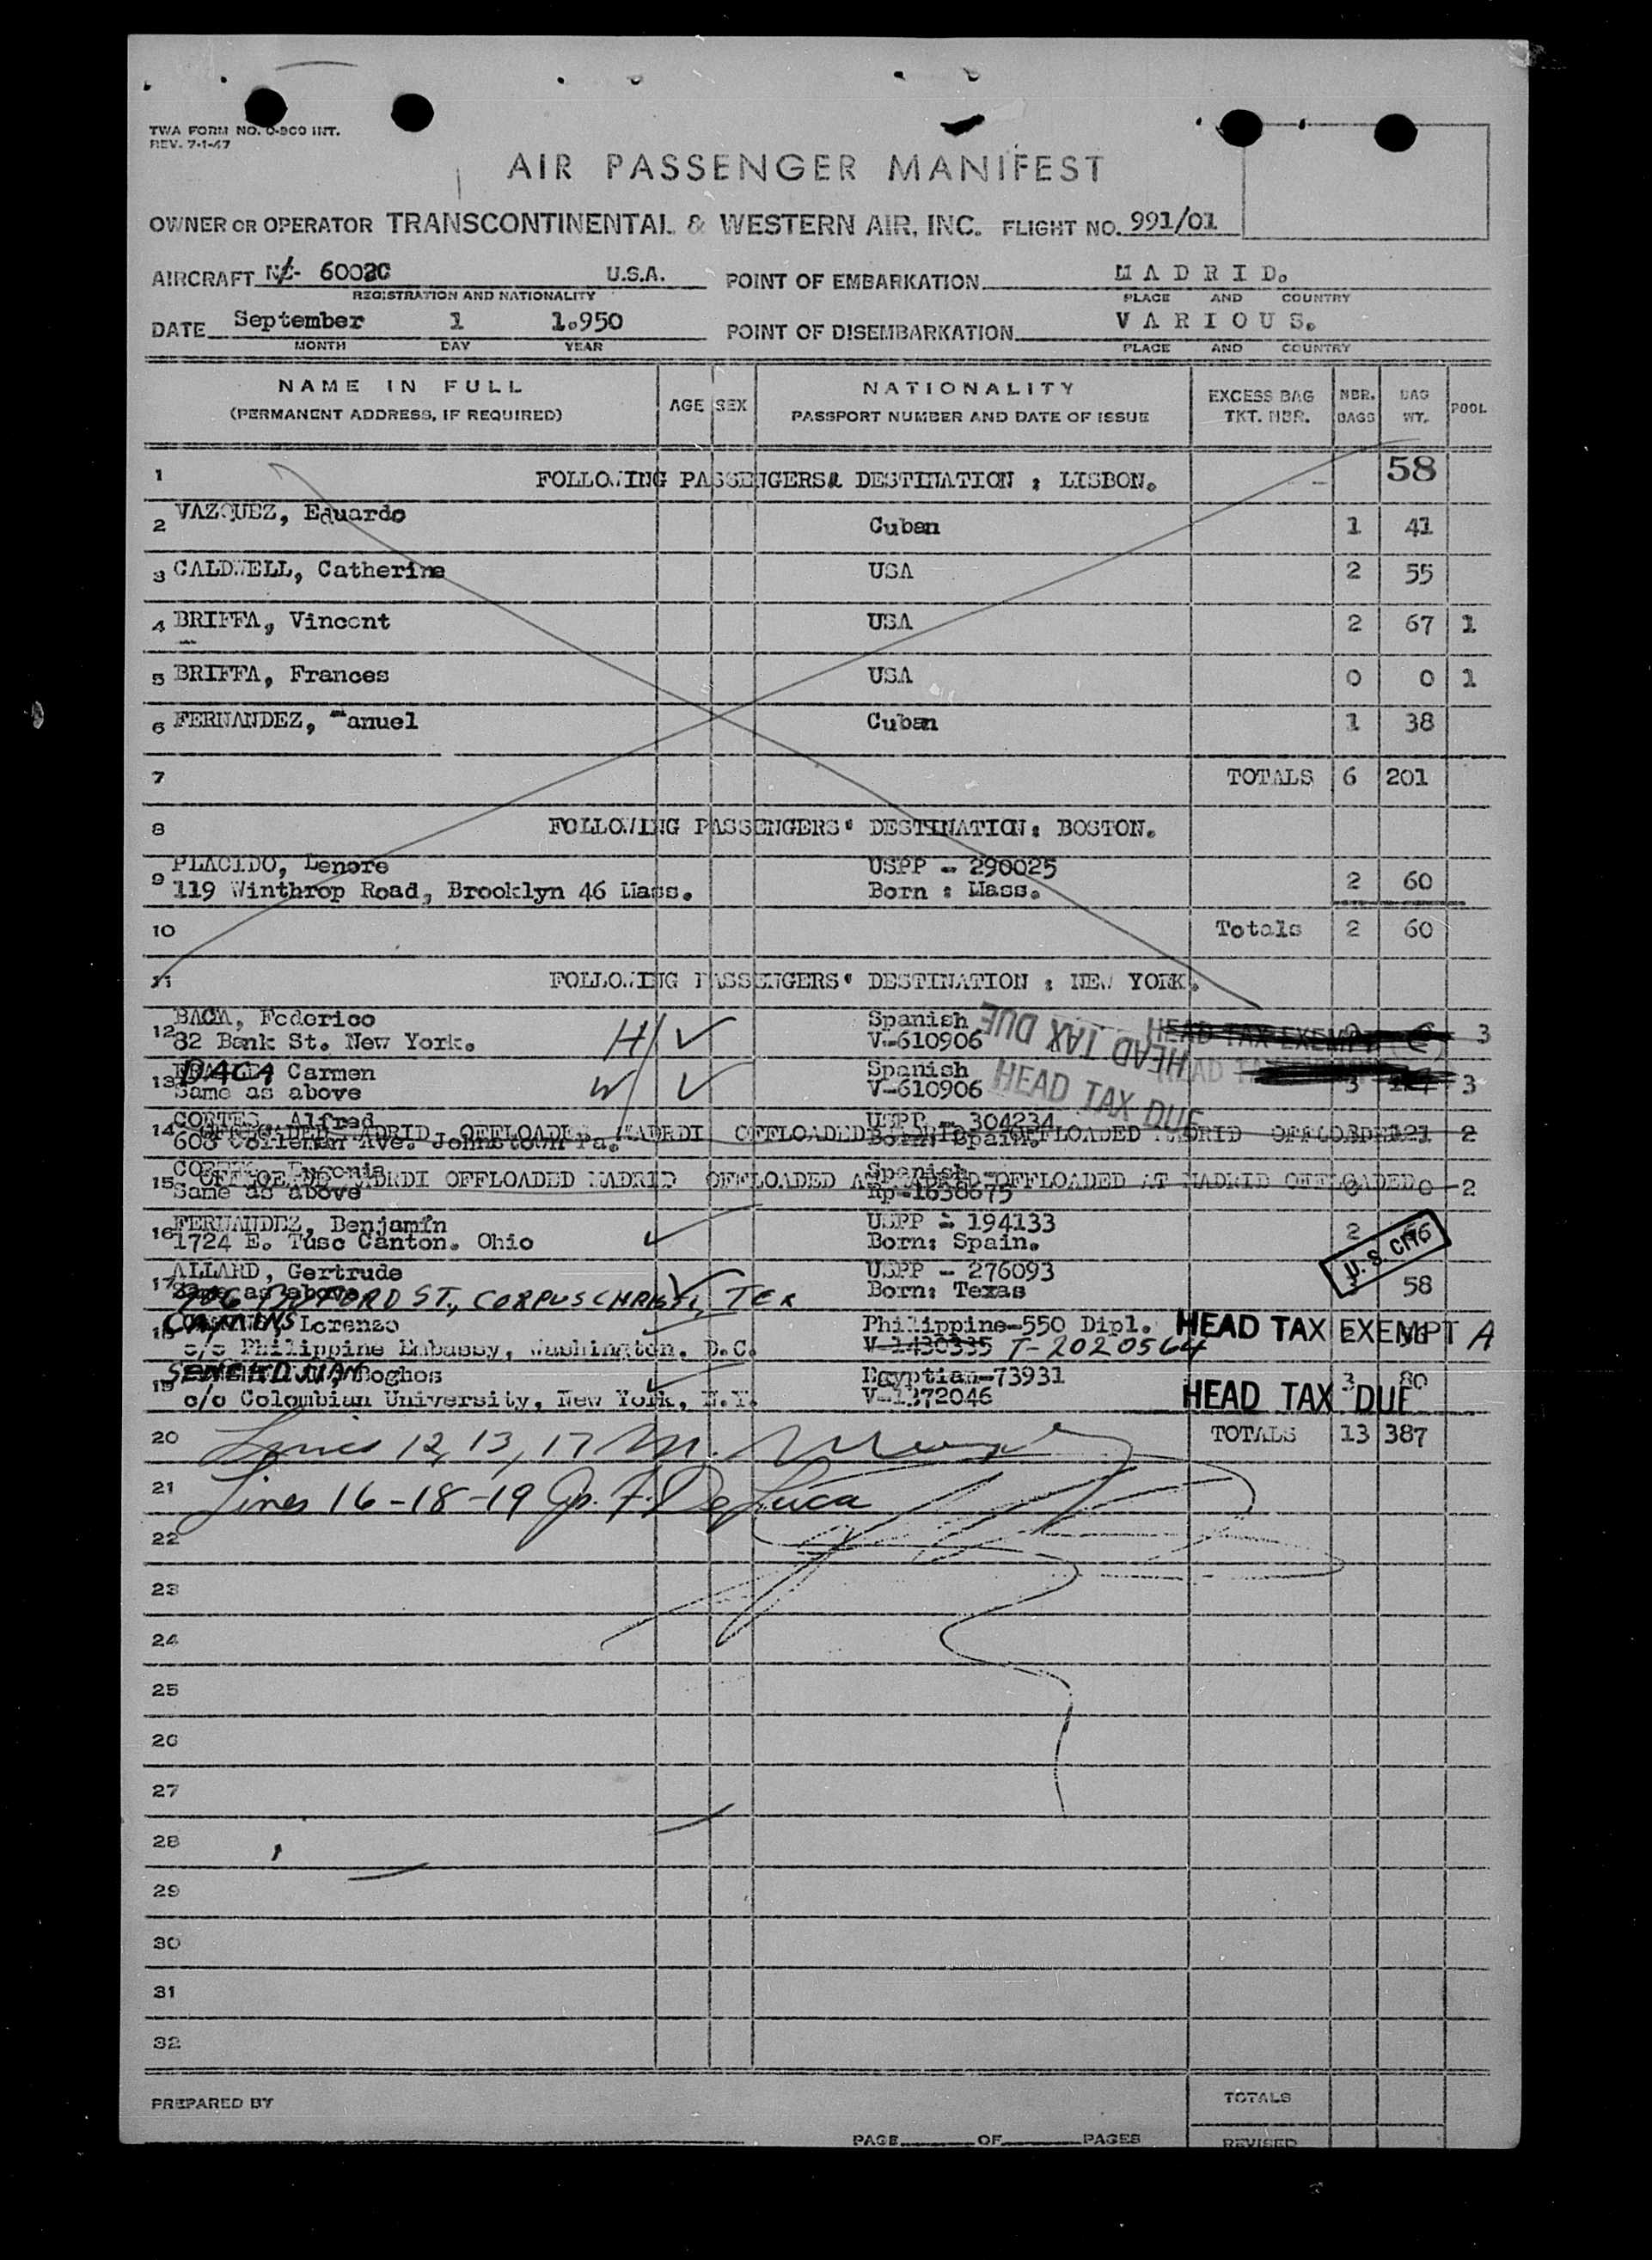 TWA FORM NO. O-900 INT.
REV. 7-1-47
AIR PASSENGER MANIFEST
OWNER OR OPERATOR TRANSCONTINENTAL & WESTERN AIR, INC. FLIGHT NO. 991/01
AIRCRAFT 6002C U.S.A. POINT OF EMBARKATION M A D R I D.
REGISTRATION AND NATIONALITY PLACE AND COUNTRY
DATE September 1 1.950 POINT OF DISEMBARKATION V A R I O U S.
MONTH DAY YEAR PLACE AND COUNTRY
NAME IN FULL (PERMANENT ADDRESS, IF REQUIRED) AGE SEX NATIONALITY PASSPORT NUMBER AND DATE OF ISSUE EXCESS BAG TKT. NBR. NBR. BAGS BAG WT. POOL
1 FOLLOWING PASSENGERS& DESTINATION : LISBON. 58
2 VAZQUEZ, Eduardo Cuban 1 41
3 CALDWELL, Catherine USA 2 55
4 BRIFFA, Vincent USA 2 67 1
5 BRIFFA, Frances USA 0 0 1
6 FERNANDEZ, anuel Cuban 1 38
7 TOTALS 6 201
8 FOLLOWING PASSENGERS' DESTINATION: BOSTON.
9 PLACIDO, Lenore USPP - 290025
119 Winthrop Road, Brooklyn 46 Mass. Born : Mass. 2 60
10 Totals 2 60
11 FOLLOWING PASSENGERS' DESTINATION : NEW YORK.
12 BACA, Federico Spanish HEAD TAX DUE HEAD TAX EXEMPT
82 Bank St. New York. H V-610906 3
13 BACA Carmen Spanish HEAD TAX DUE
Same as above W V-610906 3 3
14 CORTES, Alfred USPP - 304234
OFFLOADED MADRID OFFLOADED MADRDI OFFLOADED MADRID OFFLOADED MADRID OFFLOADED 121 2
608 Coleman Ave. Johnstown Pa. Born: Spain.
15 Eugenia Spanish
OFFLOADED MADRDI OFFLOADED MADRID OFFLOADED AT MADRID OFFLOADED AT MADRID OFFLOADED 0 2
Same as above Rp-1638675
16 FERNANDEZ, Benjamin USPP - 194133 2
1724 E. Tusc Canton. Ohio Born: Spain. U.S. CIT
17 ALLARD, Gertrude USPP - 276093
Same as above BUFORD ST., CORPUS CHRISTI, TEX Born: Texas 58
18 Lorenzo Philippine-550 Dipl. HEAD TAX EXEMPT A
c/o Philippine Embassy, Washington. D.C. V-1430335 T-2020564
19 Boghos Egyptian-73931 3 80
c/o Colombian University, New York, N.Y. V-1372046 HEAD TAX DUE
20 Lines 12, 13, 17 M. TOTALS 13 387
21 Lines 16-18-19 Jp. F. DeLuca
22
23
24
25
26
27
28
29
30
31
32
PREPARED BY TOTALS
PAGE OF PAGES REVISED